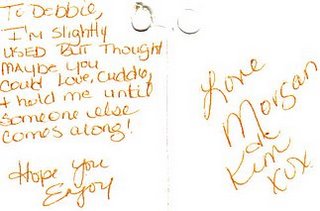 To Debbie,
I'm slightly
USED BUT Thought
MAYBE YOU
COULD LOVE, CUDDLE,
+ hold me until
someone else
comes along!
Hope you
Enjoy
Love
Morgan
&
Kim
xox